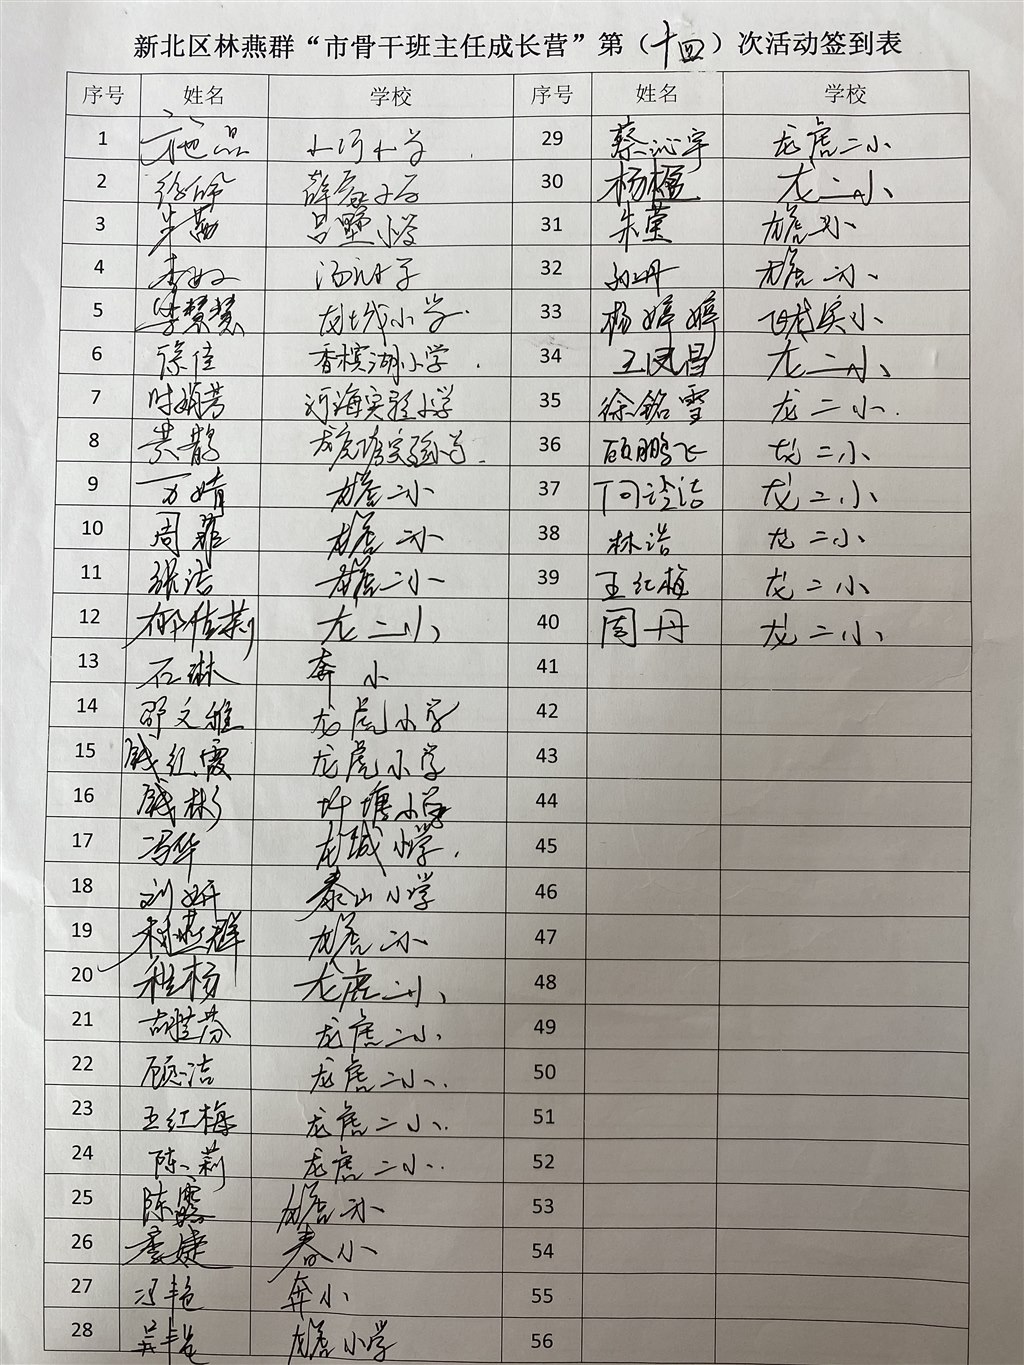 新北区林燕群“市骨干班主任成长营”第（十四）次活动签到表
序号 姓名 学校 序号 姓名 学校
1 施品 小河小学 29 蔡沁宇 龙虎二小
2 薛家小学 30 杨楹 龙二小
3 朱勤 吕墅小学 31 朱莹 龙虎二小
4 李 32 孙丹 龙虎二小
5 李慧慧 龙城小学 33 杨婷婷 飞龙实小
6 徐佳 香槟湖小学 34 王凤昌 龙二小
7 时娟芳 河海实验小学 35 徐铭雪 龙二小
8 龙虎塘实验小学 36 顾鹏飞 龙二小
9 万婧 龙虎二小 37 龙二小
10 周菲 龙虎二小 38 林浩 龙二小
11 张洁 龙虎二小 39 王红梅 龙二小
12 郁佳莉 龙二小 40 周丹 龙二小
13 石琳 奔小 41
14 邵文雅 龙虎小学 42
15 钱红霞 龙虎小学 43
16 钱彬 圩塘小学 44
17 冯华 龙城小学 45
18 刘妍 泰山小学 46
19 林燕群 龙虎二小 47
20 程杨 龙虎二小 48
21 龙虎二小 49
22 顾洁 龙虎二小 50
23 王红梅 龙虎二小 51
24 陈莉 龙虎二小 52
25 陈露 龙虎二小 53
26 春小 54
27 冯艳 奔小 55
28 吴艳 龙虎小学 56